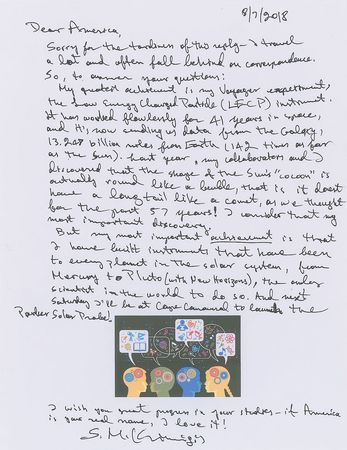 8/7/2018
Dear America,
Sorry for the tardiness of this reply - I travel
a lot and often fall behind on correspondence.
So, to answer your questions:
My greatest achievement is my Voyager experiment,
the Low Energy Charged Particle (LECP) instrument.
It has worked flawlessly for 41 years in space,
and it's now sending us data from the Galaxy,
13.2 billion miles from Earth (142 times as far
as the Sun). Last year, my collaborators and I
discovered that the shape of the Sun's "cocoon" is
actually round like a bubble, that is it doesn't
have a long tail like a comet, as we thought
for the past 57 years! I consider that my
most important discovery.
But my most important achievement is that
I have built instruments that have been
to every planet in the solar system, from
Mercury to Pluto (with New Horizons), the only
scientist in the world to do so. And next
Saturday I'll be at Cape Canaveral to launch the
Parker Solar Probe!
I wish you great progress in your studies - if America
is your real name, I love it!